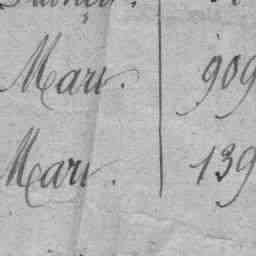 Mars. 909
Mars. 139